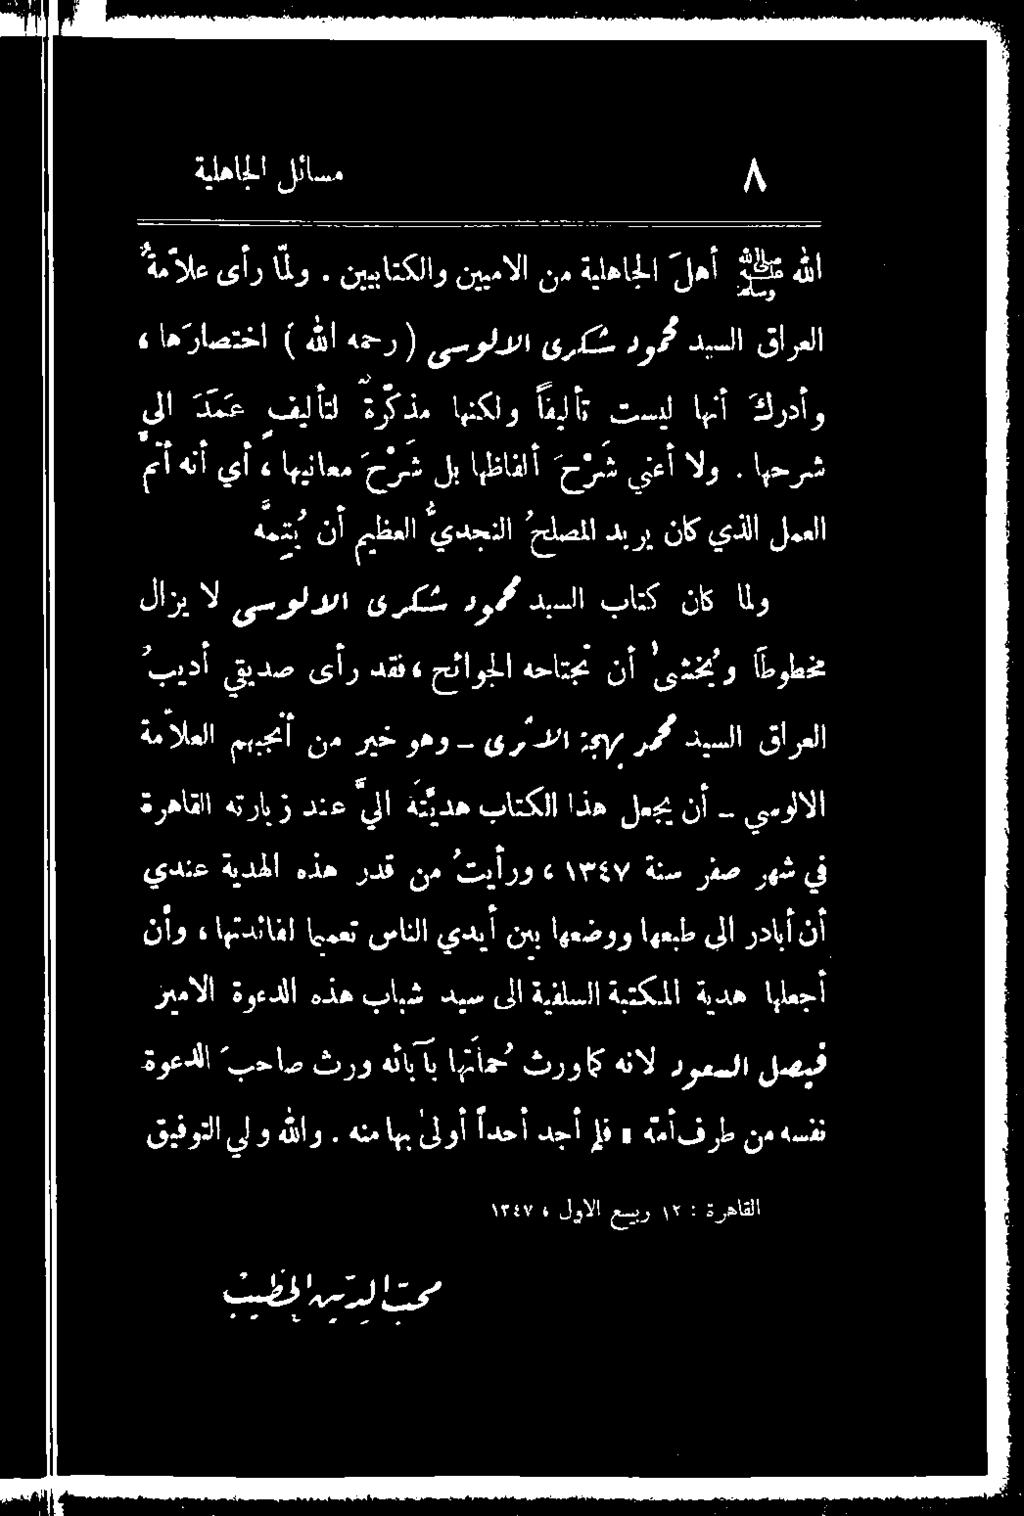 ٨ مسائل الجاهلية
الله ﷺ أهلَ الجاهلية من الاميين والكتابيين . ولمّا رأى علاّمةُ
العراق السيد محمود شكرى الالوسى ( رحمه الله ) اختصارَها ،
وأدركَ أنها ليست تأليفاً ولكنها مذكّرةٌ لتأليفٍ عَمَدَ الى
شرحها . ولا أعني شَرْحَ ألفاظها بل شَرْحَ معانيها ، أي أنه أتمَّ
العمل الذي كان يريد المصلحُ النجديُّ العظيم أن يُتِمَّه
ولما كان كتاب السيد محمود شكرى الالوسى لا يزال
مخطوطاً ويُخشى أن تجتاحه الجوائح ، فقد رأى صديقي أديبُ
العراق السيد محمد بهجة الاثرى ـ وهو خير من أنجبهم العلاّمة
الالوسي ـ أن يجعل هذا الكتاب هديّتَه اليَّ عند زيارته القاهرة
في شهر صفر سنة ١٣٤٧ ، ورأيتُ من قدر هذه الهدية عندي
أن أبادر الى طبعها ووضعها بين أيدي الناس تعميما لفائدتها ، وأن
أجعلها هدية المكتبة السلفية الى سيد شباب هذه الدعوة الامير
فيصل السعود لانه كما ورث حُماتَها بآبائه ورث صاحبَ الدعوة
نفسه من طرف أمّه ، فلم أجد أحداً أولى بها منه . والله ولي التوفيق
القاهرة : ١٢ ربيع الاول ، ١٣٤٧
محب الدين الخطيب